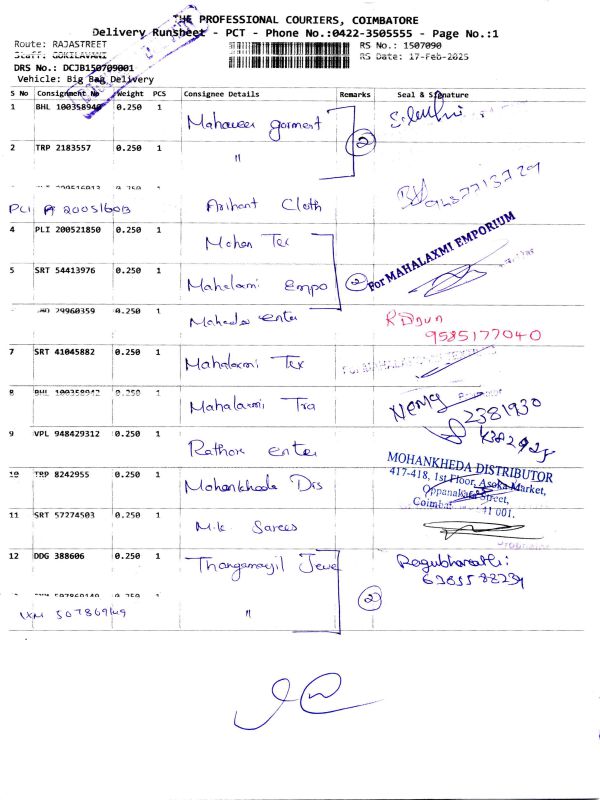 THE PROFESSIONAL COURIERS, COIMBATORE
Delivery Runsheet - PCT - Phone No.:0422-3505555 - Page No.:1
Route: RAJASTREET RS No.: 1507090
Staff: GOKILAVANI RS Date: 17-Feb-2025
DRS No.: DCJB150709001
Vehicle: Big Bag Delivery
S No Consignment No Weight PCS Consignee Details Remarks Seal & Signature
1 BHL 100358940 0.250 1 Mahaveer garment
2 TRP 2183557 0.250 1 " 2
PLI 200516013 Arihant Cloth
4 PLI 200521850 0.250 1 Mohan Tex
For MAHALAXMI EMPORIUM
5 SRT 54413976 0.250 1 Mahalaxmi Empo 2
29960359 0.250 1 Mahadev enter
9585177040
7 SRT 41045882 0.250 1 Mahalaxmi Tex
8 BHL 100358942 0.250 1 Mahalaxmi Tra
9 VPL 948429312 0.250 1 Rathore enter
MOHANKHEDA DISTRIBUTOR
417-418, 1st Floor, Asoka Market,
Oppanakara Street,
10 TRP 8242955 0.250 1 Mohankheda Dis
11 SRT 57274503 0.250 1 M.k Sarees
12 DDG 388606 0.250 1 Thangamayil Jewe Ragubharathi:
VXM 507869149 " 2